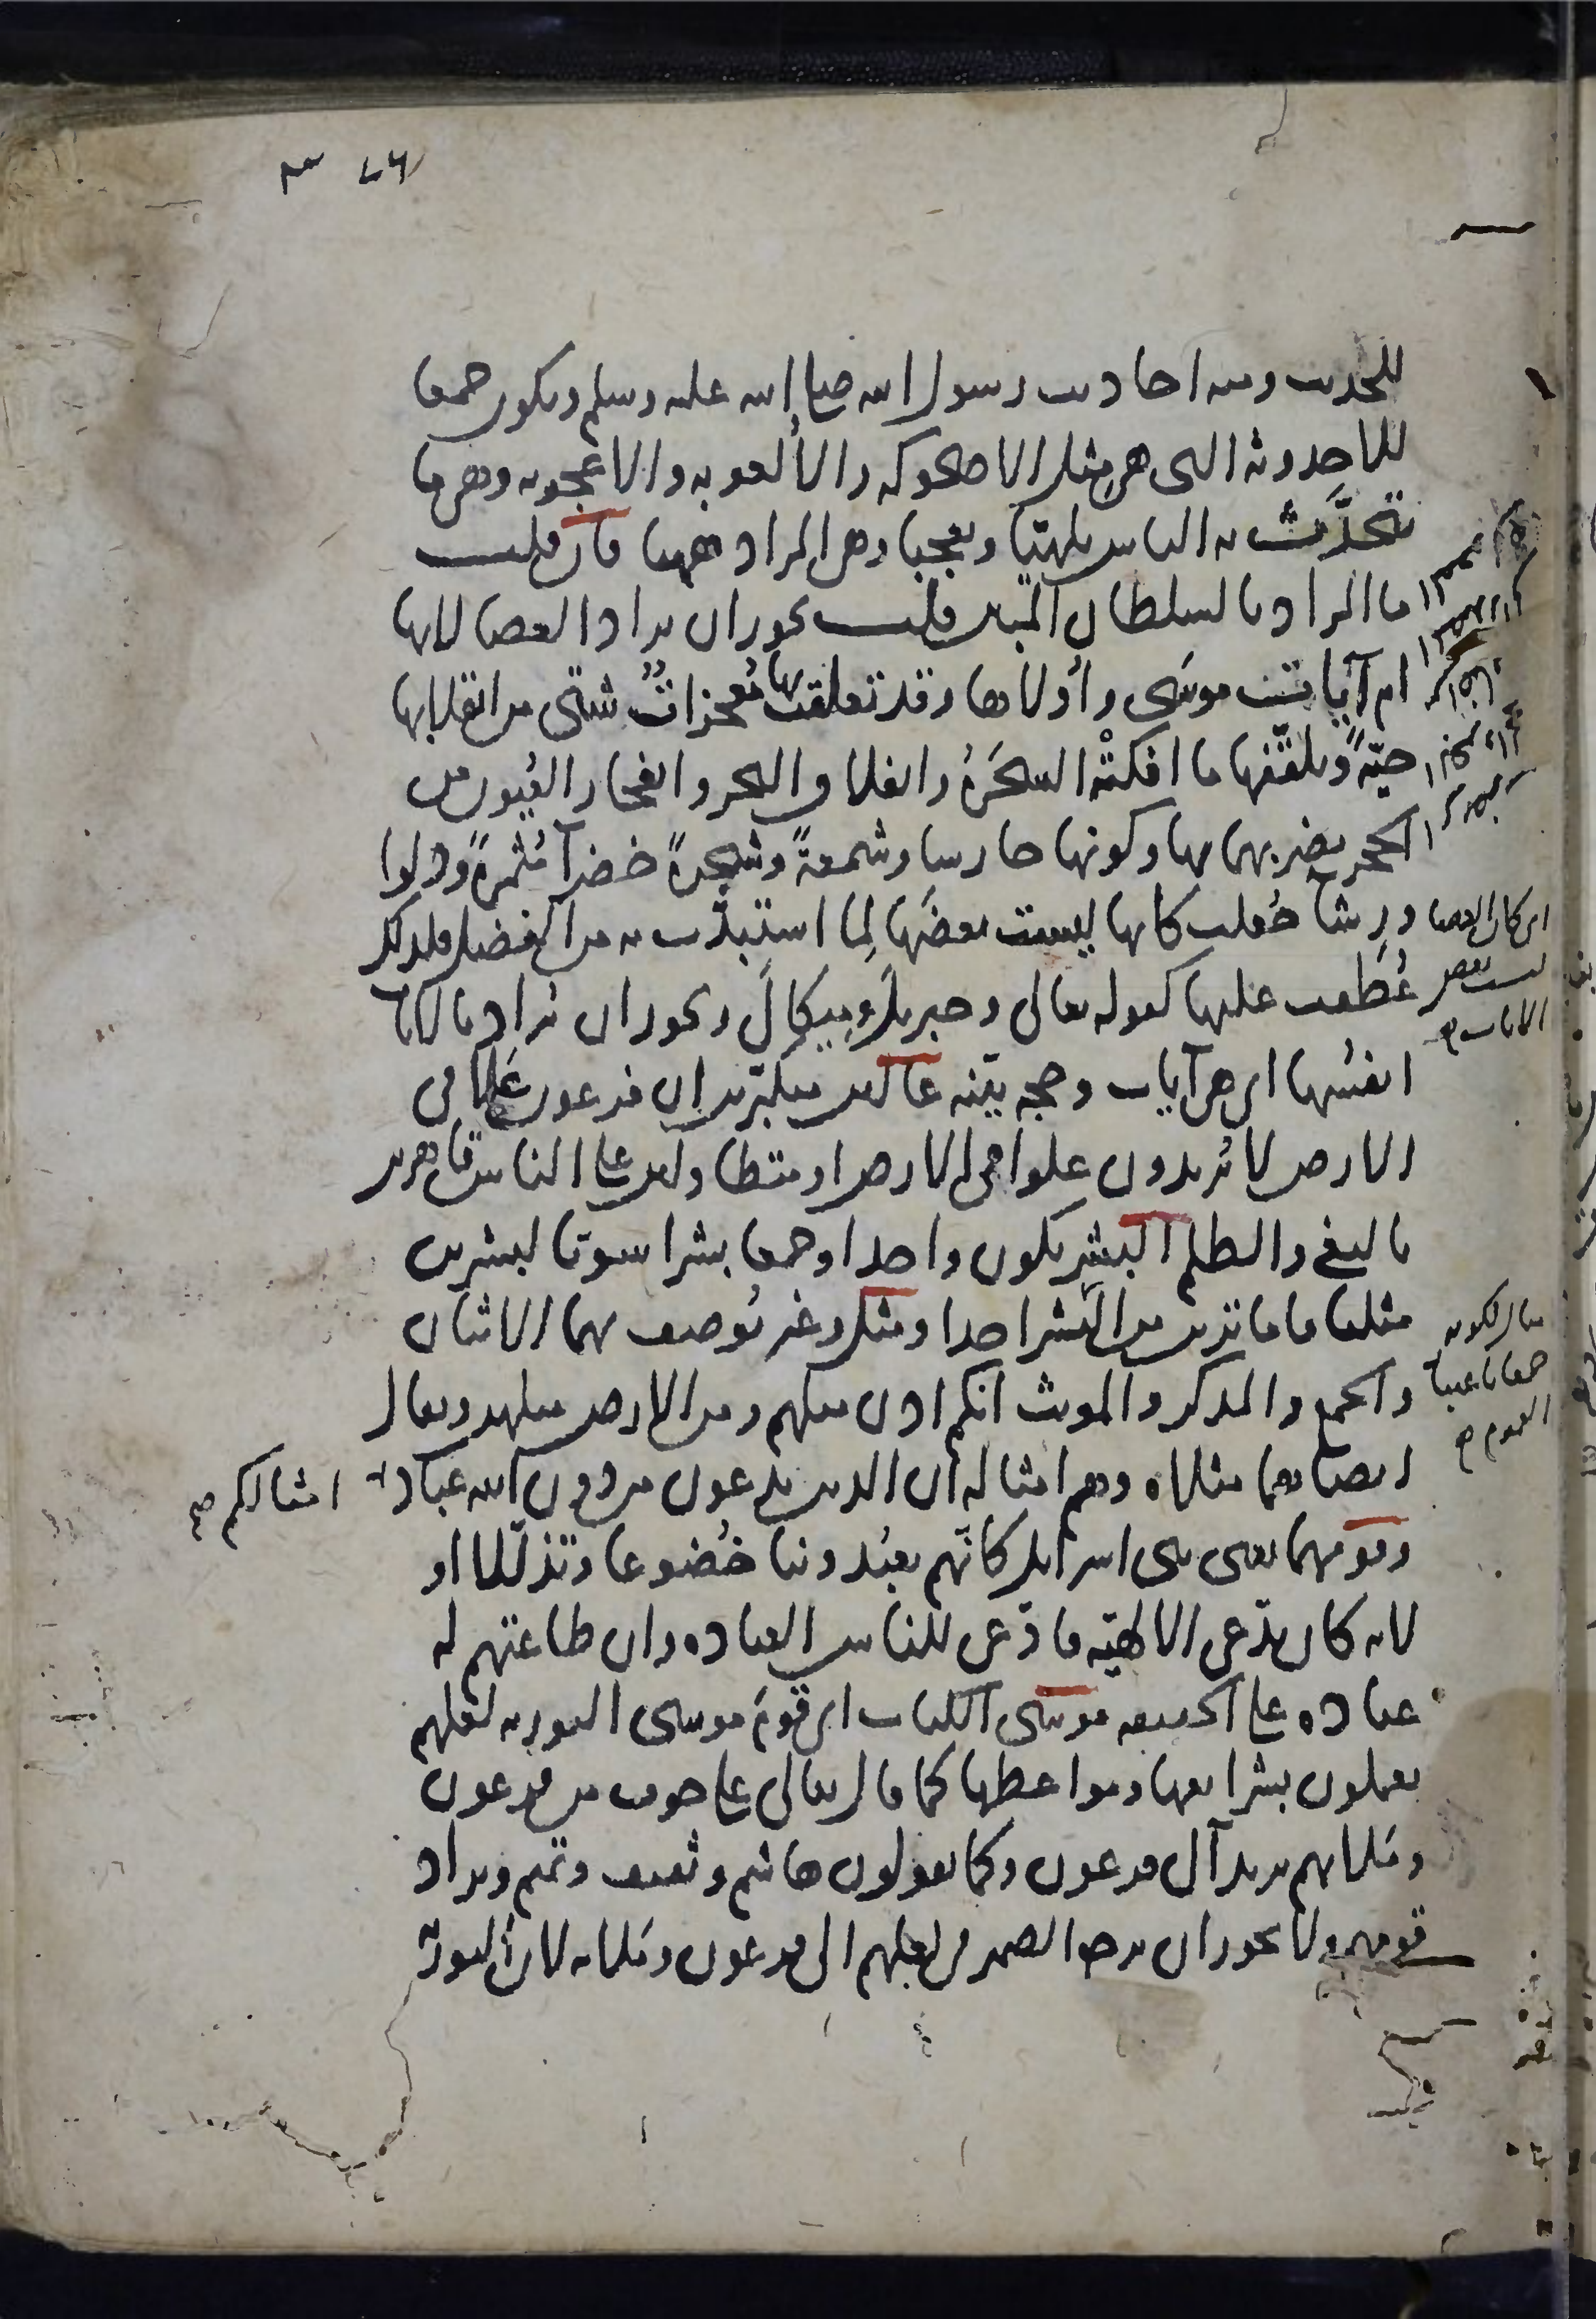 للحديث ومنه احاديث رسول الله صلى الله عليه وسلم ويكون جمعا
للاحدوثة التى هى مثل الاضحوكة والألعوبة والاعجوبة وهى ما
تتحدَّث به الناس تلهيّا وتعجبا وهى المراد ههنا فان قلت
ما المراد بالسلطان المبين قلت يجوز ان يراد العصا لانها
ام آيات موسى وأولاها وقد تعلقت بها مُعجزاتٌ شتّى من انقلابها
حيّةً وتلقّفها ما افكتْه السحَرَةُ وانفلاق البحر وانفجار العُيون من
الحجر بضربهما بها وكونها حارسا وشمعةً وشجرةً خضرآ مُثمرةً ودلوا
ورِشآ جُعلت كانها ليست بعضَها لِما استبدّت به من الفضل فلذلك
عُطفت عليها كقوله تعالى وجبريل وميكال ويجوز ان تُراد بالايات
انفسُها اى هى آيات وحجة بيّنه عالين متكبّرين ان فرعون علا فى
الارض لا يُريدون علوا فى الارض او متطاولين على الناس قاهرين
بالبغى والظلم البشر يكون واحدا وجمعا بشرا سويّا لبشرين
مثلنا فاما ترين من البشر احدا ومثل وغير يُوصف بهما الاثنان
والجمع والمذكر والمونث انكم اذن مثلهم ومن الارض مثلهن ويقال
ايضا هما مثلاه وهم امثاله ان الذين يدعون من دون الله عباد امثالكم صح
وقومهما يعنى بنى اسرايل كانّهم يعبُدوننا خُضوعا وتذلّلا او
لانه كان يدّعى الالهيّه فادّعى للناس العباده وان طاعتهم له
عباده على الحقيقه موسى الكتاب اى قومَ موسى التوريه لعلهم
يعملون بشرايعها ومواعظها كما قال تعالى على خوف من فرعون
وملايهم يريد آل فرعون وكما يقولون هاشم وثقيف وتميم ويراد
قومهم ولا يجوز ان يرجع الضمير فى لعلهم الى فرعون وملايه لان التورية
اى كان العصا
ليست بعض
الايات صح
مثال لكونه
جمعا باعتبار
العموم صح